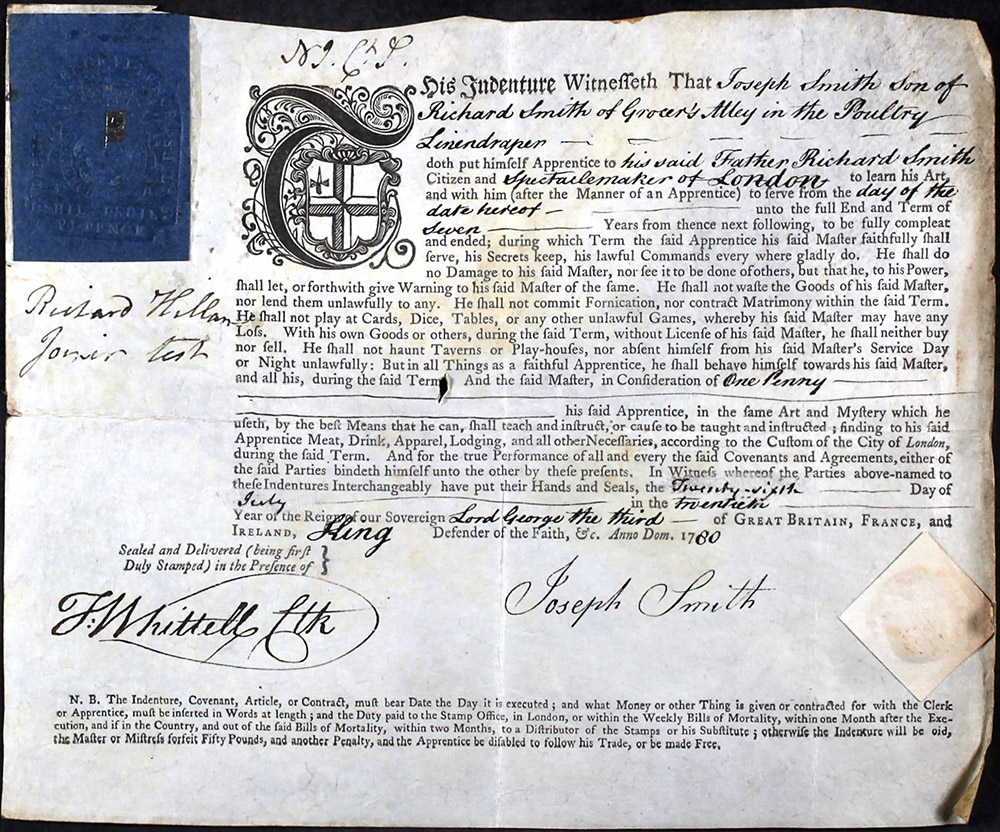 This Indenture Witneſſeth That Joseph Smith Son of
Richard Smith of Grocer's Alley in the Poultry
Linendraper
doth put himself Apprentice to his said Father Richard Smith
Citizen and Spectaclemaker of London to learn his Art,
and with him (after the Manner of an Apprentice) to ſerve from the day of the
date hereof unto the full End and Term of
Seven Years from thence next following, to be fully compleat
and ended; during which Term the ſaid Apprentice his ſaid Maſter faithfully ſhall
ſerve, his Secrets keep, his lawful Commands every where gladly do. He ſhall do
no Damage to his ſaid Maſter, nor ſee it to be done of others, but that he, to his Power,
ſhall let, or forthwith give Warning to his ſaid Maſter of the ſame. He ſhall not waſte the Goods of his ſaid Maſter,
nor lend them unlawfully to any. He ſhall not commit Fornication, nor contract Matrimony within the ſaid Term.
He ſhall not play at Cards, Dice, Tables, or any other unlawful Games, whereby his ſaid Maſter may have any
Loſs. With his own Goods or others, during the ſaid Term, without Licenſe of his ſaid Maſter, he ſhall neither buy
nor ſell. He ſhall not haunt Taverns or Play-houſes, nor abſent himſelf from his ſaid Maſter's Service Day
or Night unlawfully: But in all Things as a faithful Apprentice, he ſhall behave himſelf towards his ſaid Maſter,
and all his, during the ſaid Term And the ſaid Maſter, in Conſideration of One Penny
his ſaid Apprentice, in the ſame Art and Myſtery which he
uſeth, by the beſt Means that he can, ſhall teach and inſtruct, or cauſe to be taught and inſtructed; finding to his ſaid
Apprentice Meat, Drink, Apparel, Lodging, and all other Neceſſaries, according to the Cuſtom of the City of London,
during the ſaid Term. And for the true Performance of all and every the ſaid Covenants and Agreements, either of
the ſaid Parties bindeth himſelf unto the other by theſe preſents. In Witneſs whereof the Parties above-named to
theſe Indentures Interchangeably have put their Hands and Seals, the Twenty-sixth Day of
July in the twentieth
Year of the Reign of our Sovereign Lord George the third of GREAT BRITAIN, FRANCE, and
IRELAND, King Defender of the Faith, &c. Anno Dom. 1780
Sealed and Delivered (being firſt
Duly Stamped) in the Preſence of }
Richard
Joiner test
F: Whittell Clk
Joseph Smith
N. B. The Indenture, Covenant, Article, or Contract, muſt bear Date the Day it is executed; and what Money or other Thing is given or contracted for with the Clerk
or Apprentice, muſt be inſerted in Words at length; and the Duty paid to the Stamp Office, in London, or within the Weekly Bills of Mortality, within one Month after the Exe-
cution, and if in the Country, and out of the ſaid Bills of Mortality, within two Months, to a Diſtributor of the Stamps or his Subſtitute; otherwiſe the Indenture will be oid,
the Maſter or Miſtreſs forfeit Fifty Pounds, and another Penalty, and the Apprentice be diſabled to follow his Trade, or be made Free.